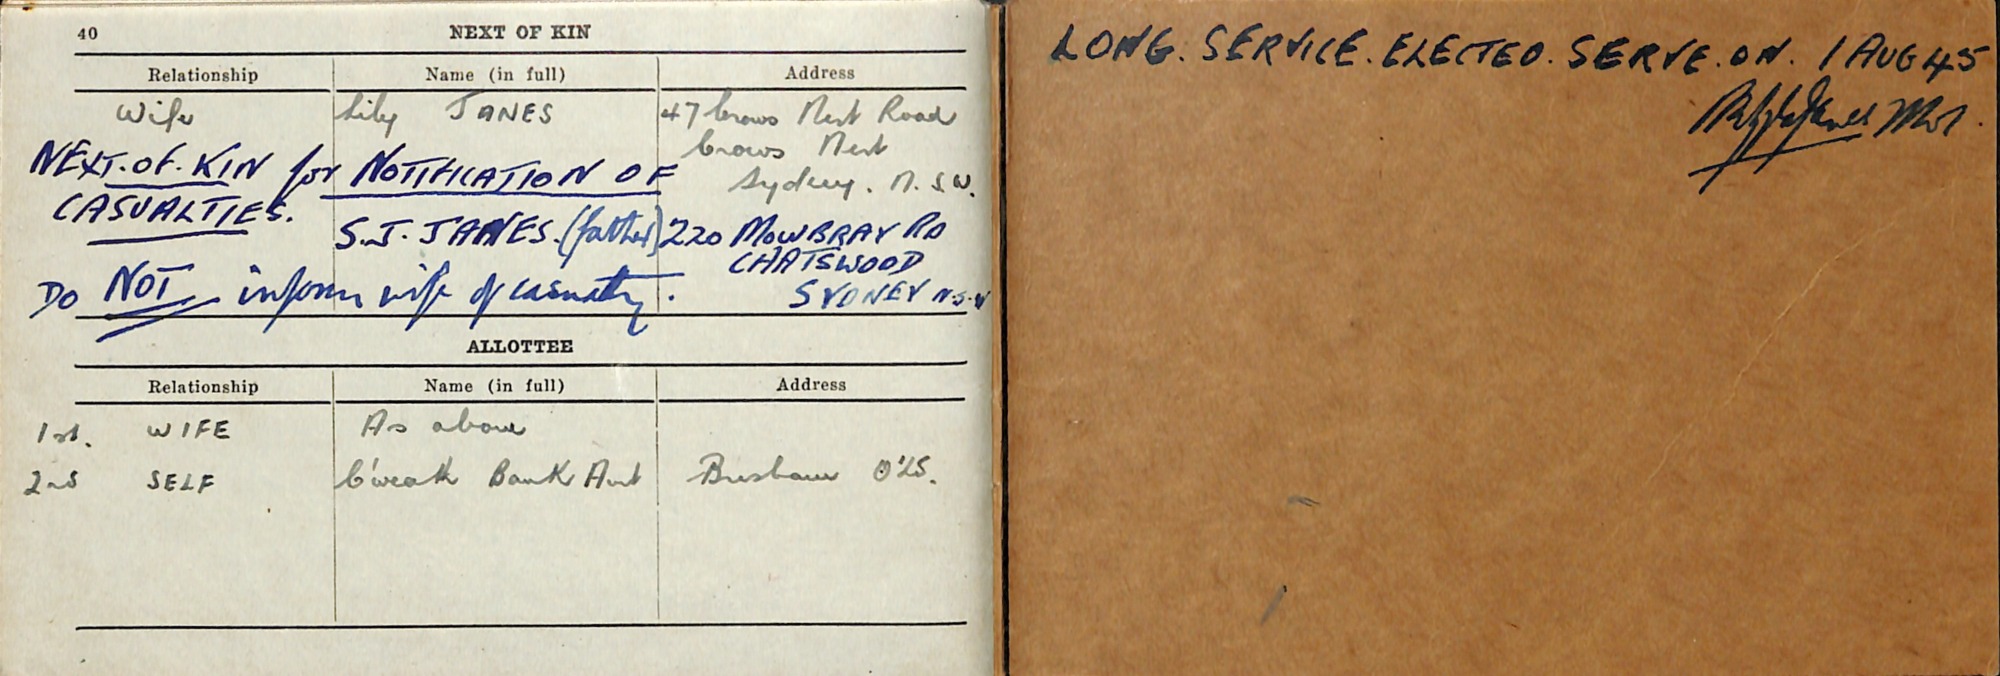 40 NEXT OF KIN
Relationship Name (in full) Address
Wife Lily JANES 47 Crows Nest Road
Crows Nest
Sydney. N.S.W.
NEXT.OF.KIN for NOTIFICATION OF
CASUALTIES.
S.J. JANES. (father) 220 MOWBRAY RD
CHATSWOOD
SYDNEY N.S.W
Do NOT inform wife of casualty.
ALLOTTEE
Relationship Name (in full) Address
1st. WIFE As above
2nd SELF C'wealth Bank Brisbane Q'LD.
LONG. SERVICE. ELECTED. SERVE. ON. 1 AUG 45